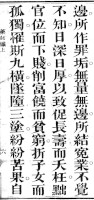 邊所作罪垢無量無邊所結寃業不覺
不知日深日厚以致促長壽而夭枉黜
官位而下賤削富饒而貧窮折子女而
孤獨罹斯九橫墜陷三塗紛紛苦果自